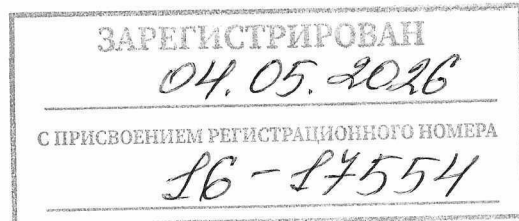 ЗАРЕГИСТРИРОВАН
04.05.2026
С ПРИСВОЕНИЕМ РЕГИСТРАЦИОННОГО НОМЕРА
16-17554